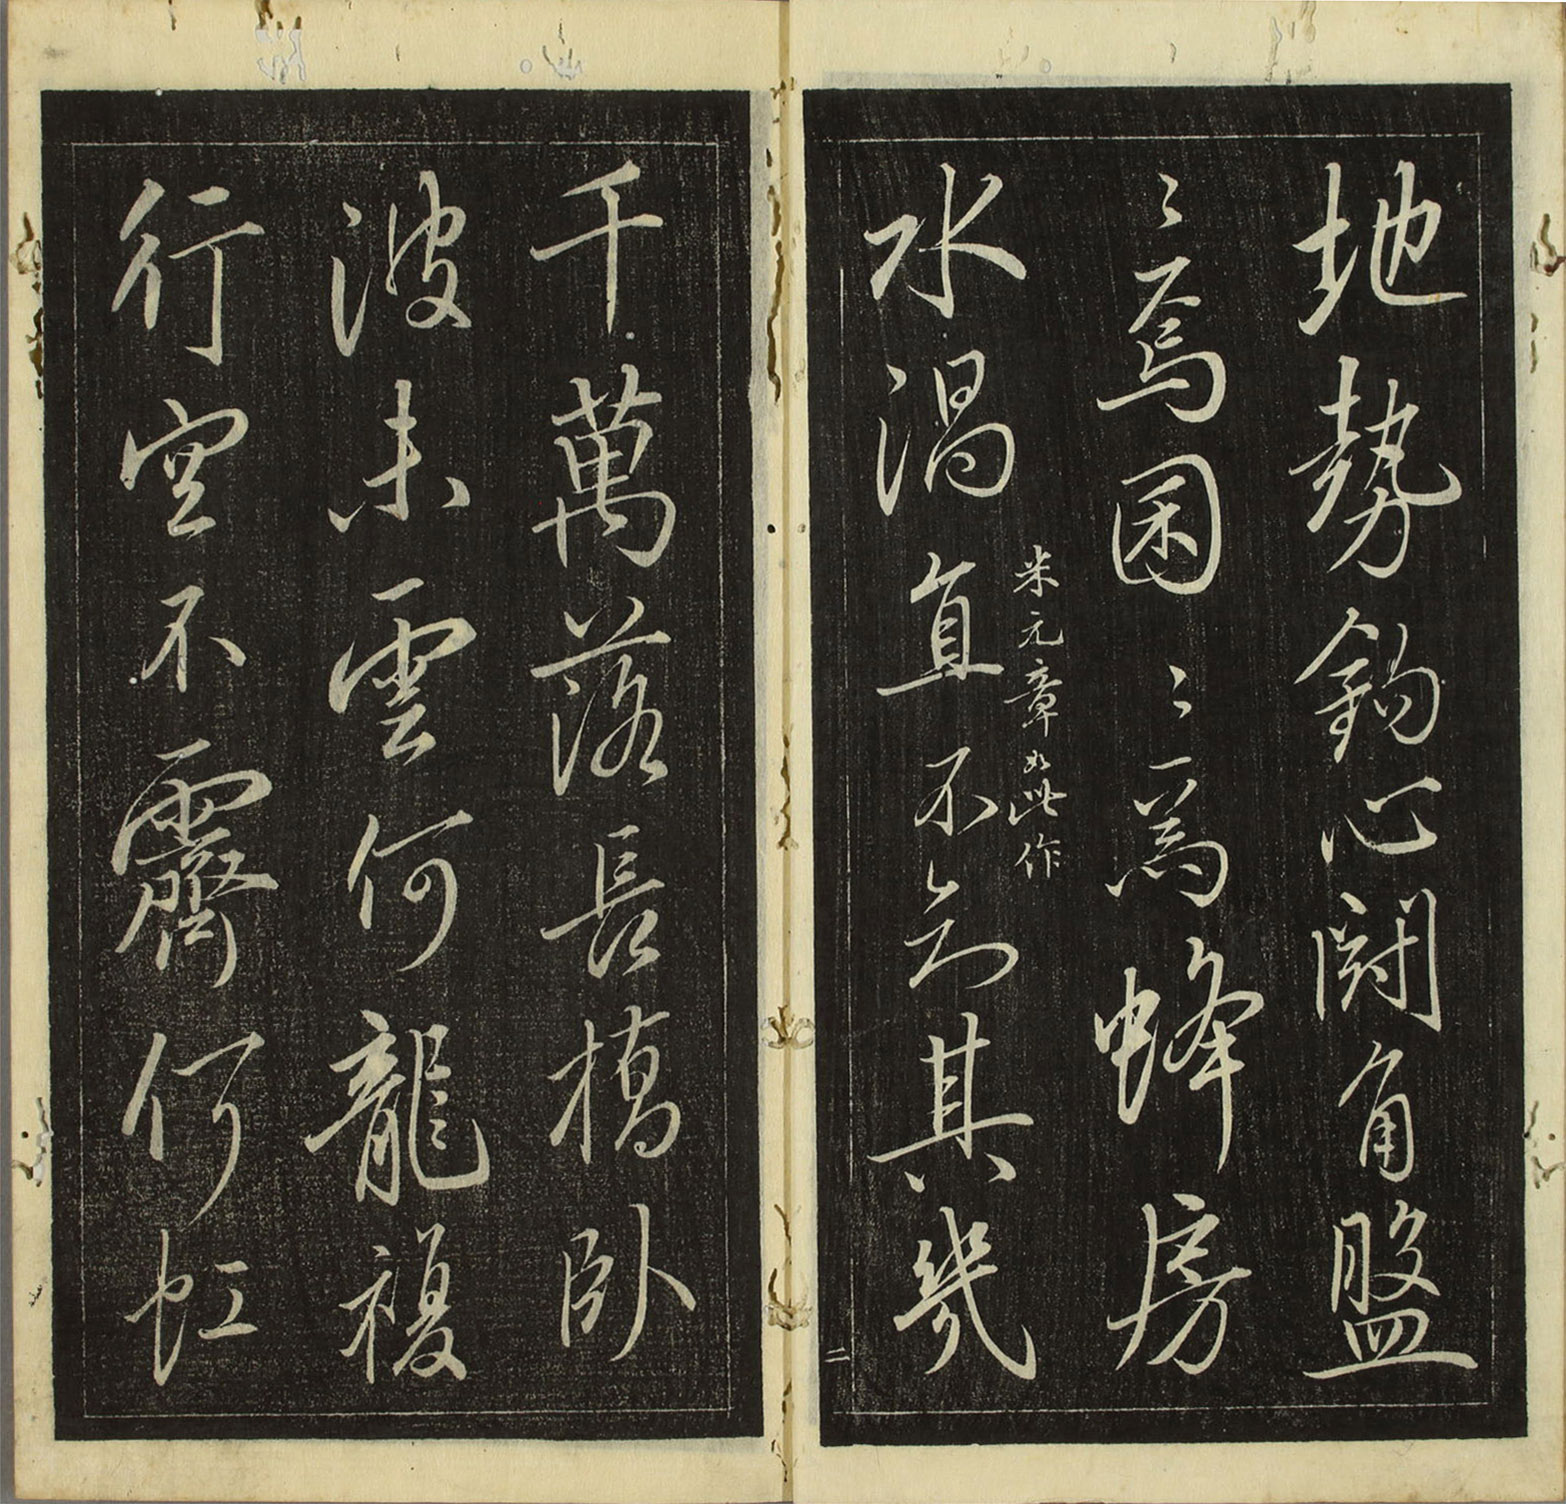 地勢鈎心鬪角盤
〻焉囷〻焉蜂房
水渦直不知其幾
米元章如此作
二
千萬落長橋臥
波未雲何龍複
行空不霽何虹